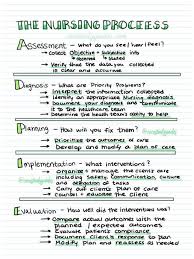 THE NURSING PROCESS
Assessment - What do you see/hear/feel?
→ collect Objective + Subjective info
→ Verify that the data you collected
is clear and accurate
Diagnosis - What are Priority Problems?
→ Interpret the information collected
→ Identify an appropriate Nursing diagnosis
→ Document your diagnosis and communicate
to the healthcare team
→ Determine the health team's ability to help
Planning - How will you fix them?
→ Prioritize the outcomes of care
→ Develop and modify a plan of care
Implementation - What interventions?
→ organize + manage the clients care
including Safety, Communication, Culture
and delegation of tasks
→ Carry out clients' Plan of care
→ Counsel + educate the Client
Evaluation - How well did the intervention work?
→ Compare actual outcomes with the
planned / expected outcomes
→ Evaluate patients compliance
→ Document clients response to plan
→ Modify Plan and reassess as needed